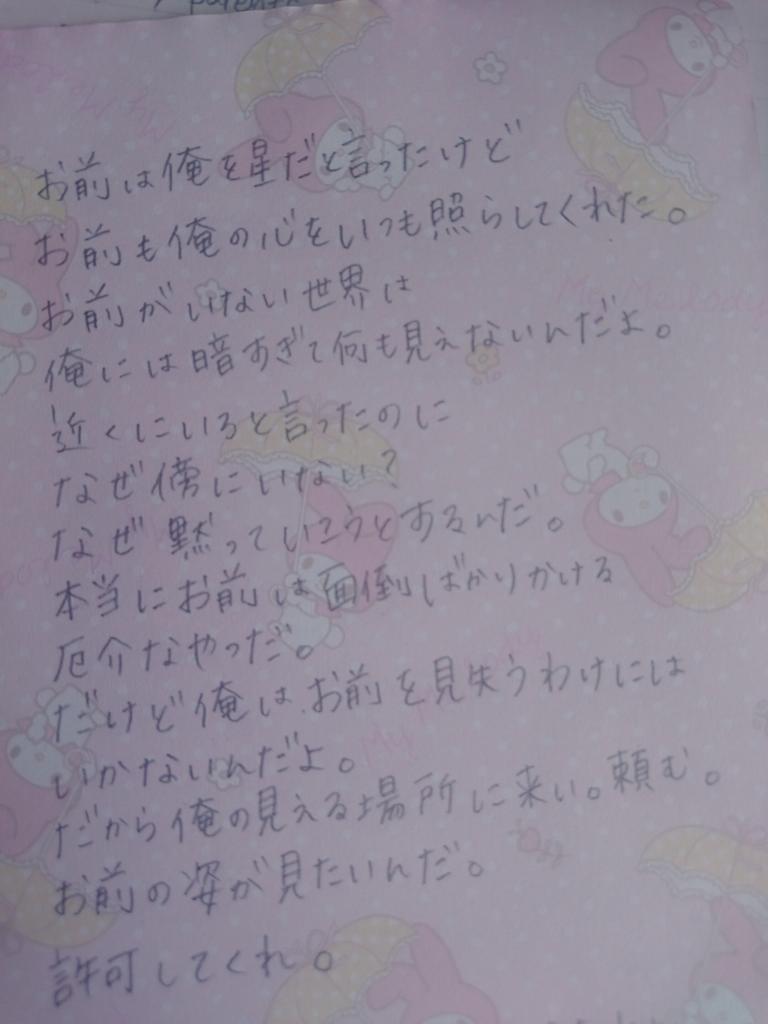 お前は俺を星だと言ったけど
お前も俺の心をいつも照らしてくれた。
お前がいない世界は
俺には暗すぎて何も見えないんだよ。
近くにいると言ったのに
なぜ傍にいない?
なぜ黙っていこうとするんだ。
本当にお前は面倒ばかりかける
厄介なやつだ。
だけど俺は、お前を見失うわけには
いかないんだよ。
だから俺の見える場所に来い。頼む。
お前の姿が見たいんだ。
許可してくれ。
My Melody